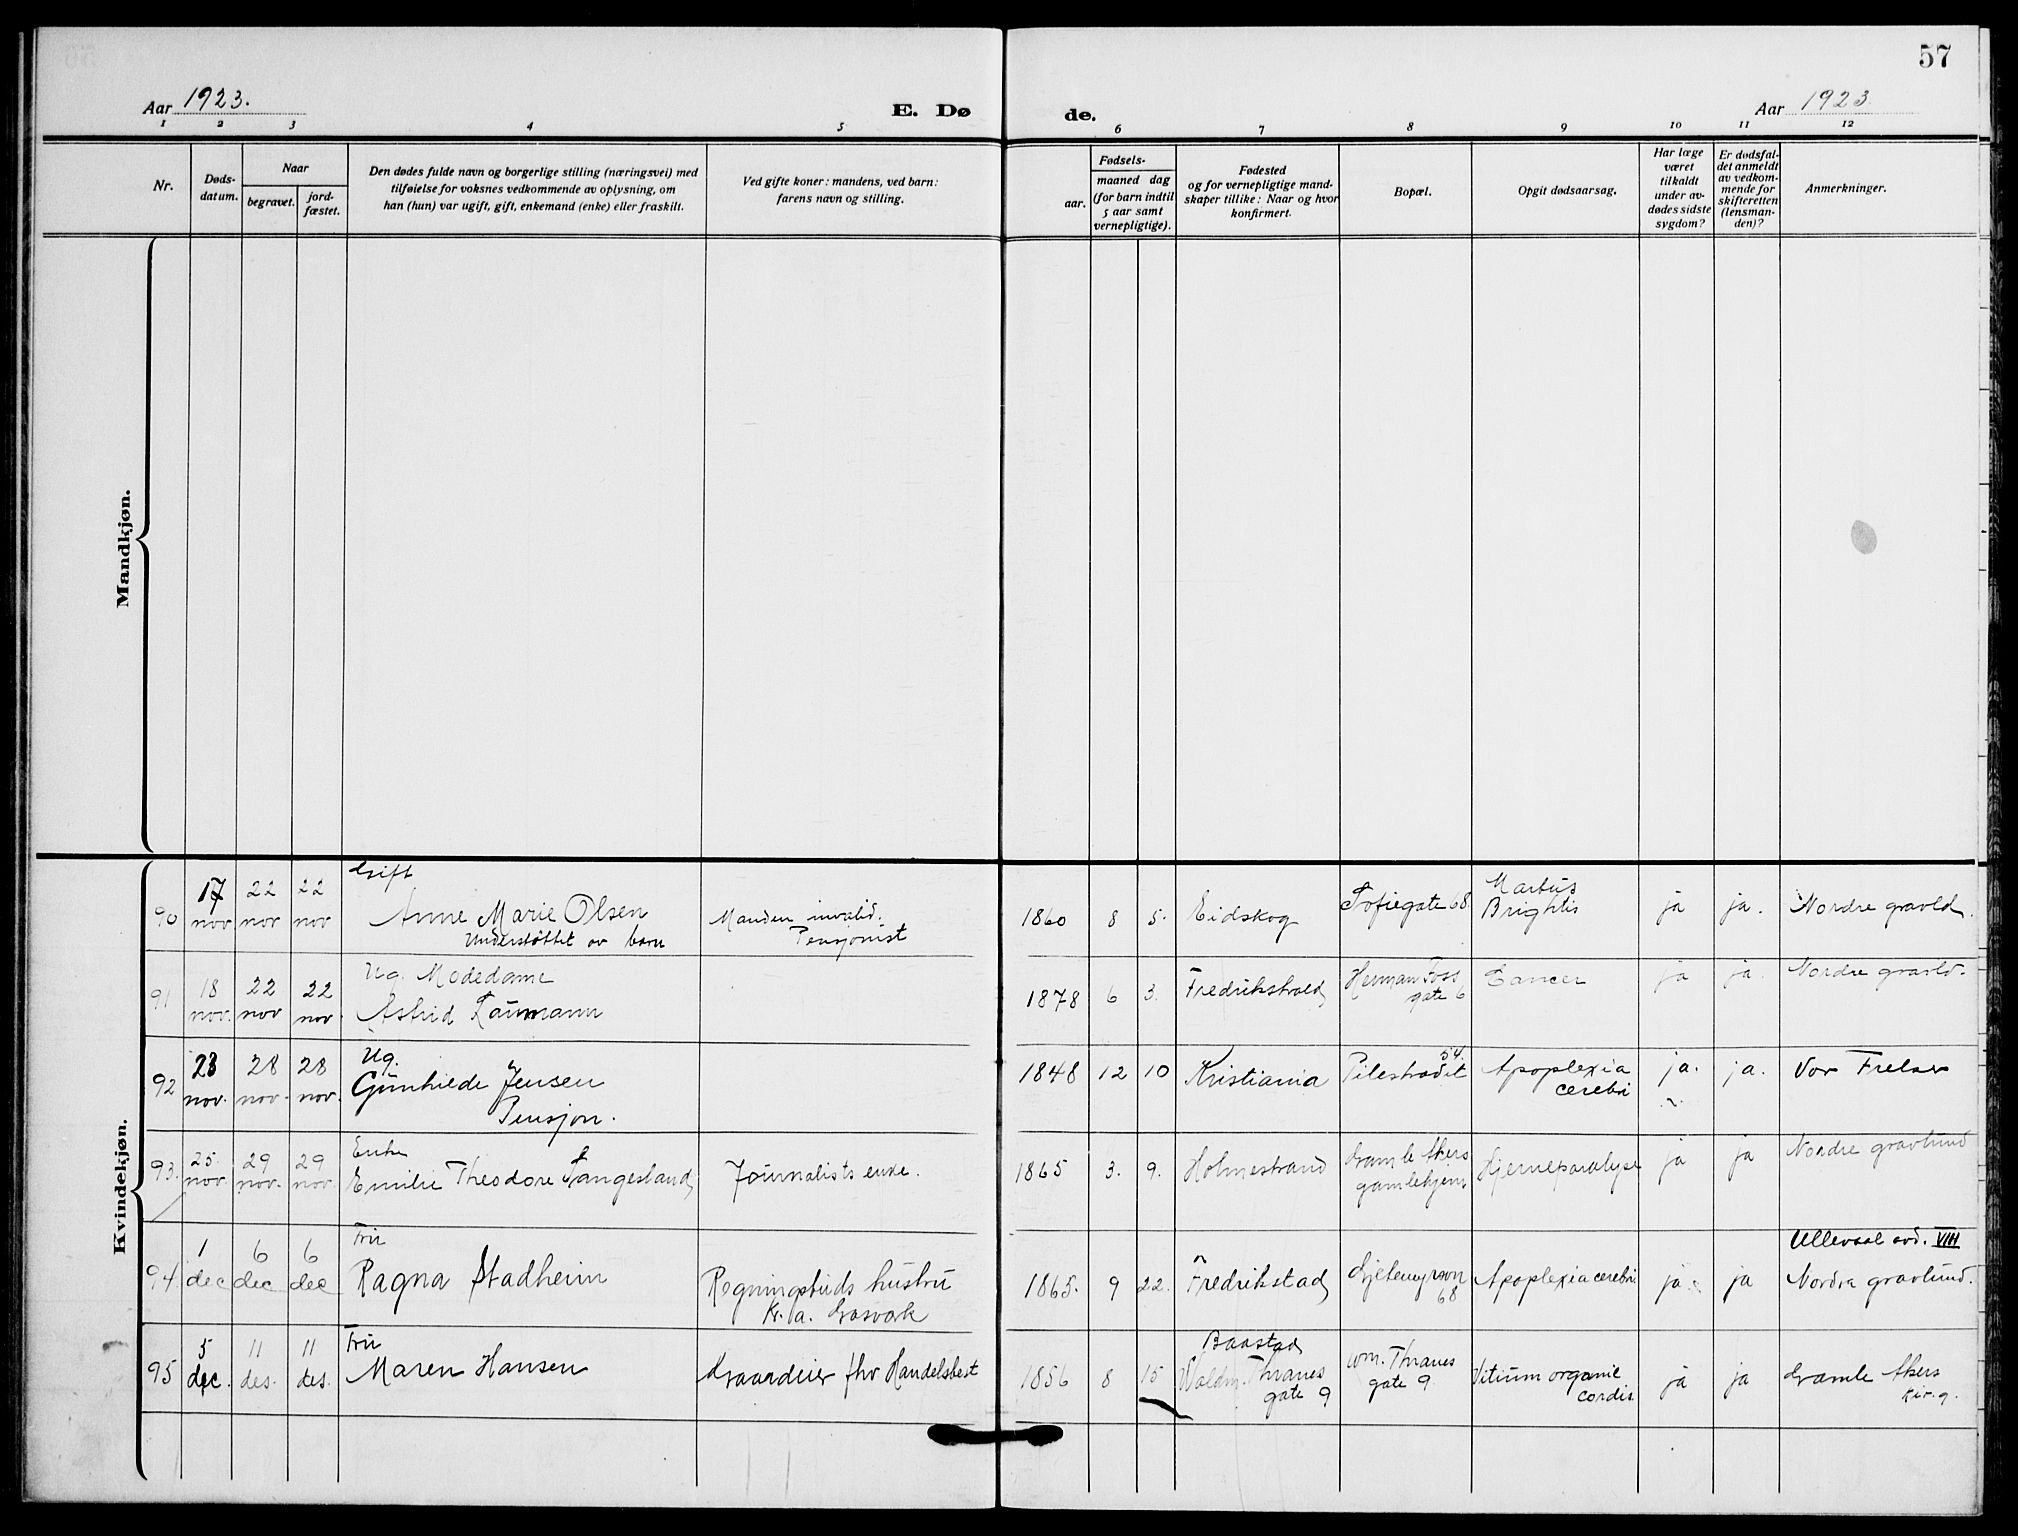 57
Aar 1923.
E. Dø
de.
Aar 1923
1 2 3 4 5 6 7 8 9 10 11 12
Nr.
Døds-
datum.
Naar
begravet.
jord-
fæstet.
Den dødes fulde navn og borgerlige stilling (næringsvei) med
tilføielse for voksnes vedkommende av oplysning, om
han (hun) var ugift, gift, enkemand (enke) eller fraskilt.
Ved gifte koner: mandens, ved barn:
farens navn og stilling.
Fødsels-
aar.
maaned dag
(for barn indtil
5 aar samt
vernepligtige).
Fødested
og for vernepligtige mand-
skaper tillike: Naar og hvor
konfirmert.
Bopæl.
Opgit dødsaarsag.
Har læge
været
tilkaldt
under av-
dødes sidste
sygdom?
Er dødsfal-
det anmeldt
av vedkom-
mende for
skifteretten
(lensman-
den)?
Anmerkninger.
Mandkjøn.
Kvindekjøn.
Gift
90 17 nov 22 nov 22 nov Anne Marie Olsen
Understøttet av barn
Manden invalid.
Pensjonist
1860 8 5. Eidskog Sofiegate 68 Morbus
Brightis ja ja. Nordre gravld.
91 18 nov. 22 nov 22 nov. Ug. Modedame
Astrid
1878 6 3. Fredrikshald Herman Foss
gate 6 Cancer ja ja Nordre gravld.
92 23 nov. 28 nov. 28 nov. Ug.
Gunhilde Jensen
Pensjon.
1848 12 10 Kristiania Pilestrædet 54. Apoplexia
cerebri ja. ja. Vor Frelser
93. 25. nov 29 nov. 29 nov. Enke
Emilie Theodore Tangesland
Journalists enke.
1865 3. 9. Holmestrand Gamle Akers
gamlehjem Hjerneparalyse ja ja Nordre gravlund
94. 1 dec 6 dec 6 dec Fru
Ragna Stadheim
Regningsbuds hustru
Kr.a. Gasverk
1865. 9 22. Fredrikstad Gjetemyrsvn
68 Apoplexia cerebri ja ja Ullevaal avd. VIII
Nordre gravlund.
95 5 dec. 11 des. 11 des. Fru
Maren Hansen
Graardeier fhv Handelsbest
1856 8 15 Baastad
Waldm. Thranes
gate 9 Wm. Thranes
gate 9. Vitium organic
cordis. ja ja Gamle Akers
kir.g.